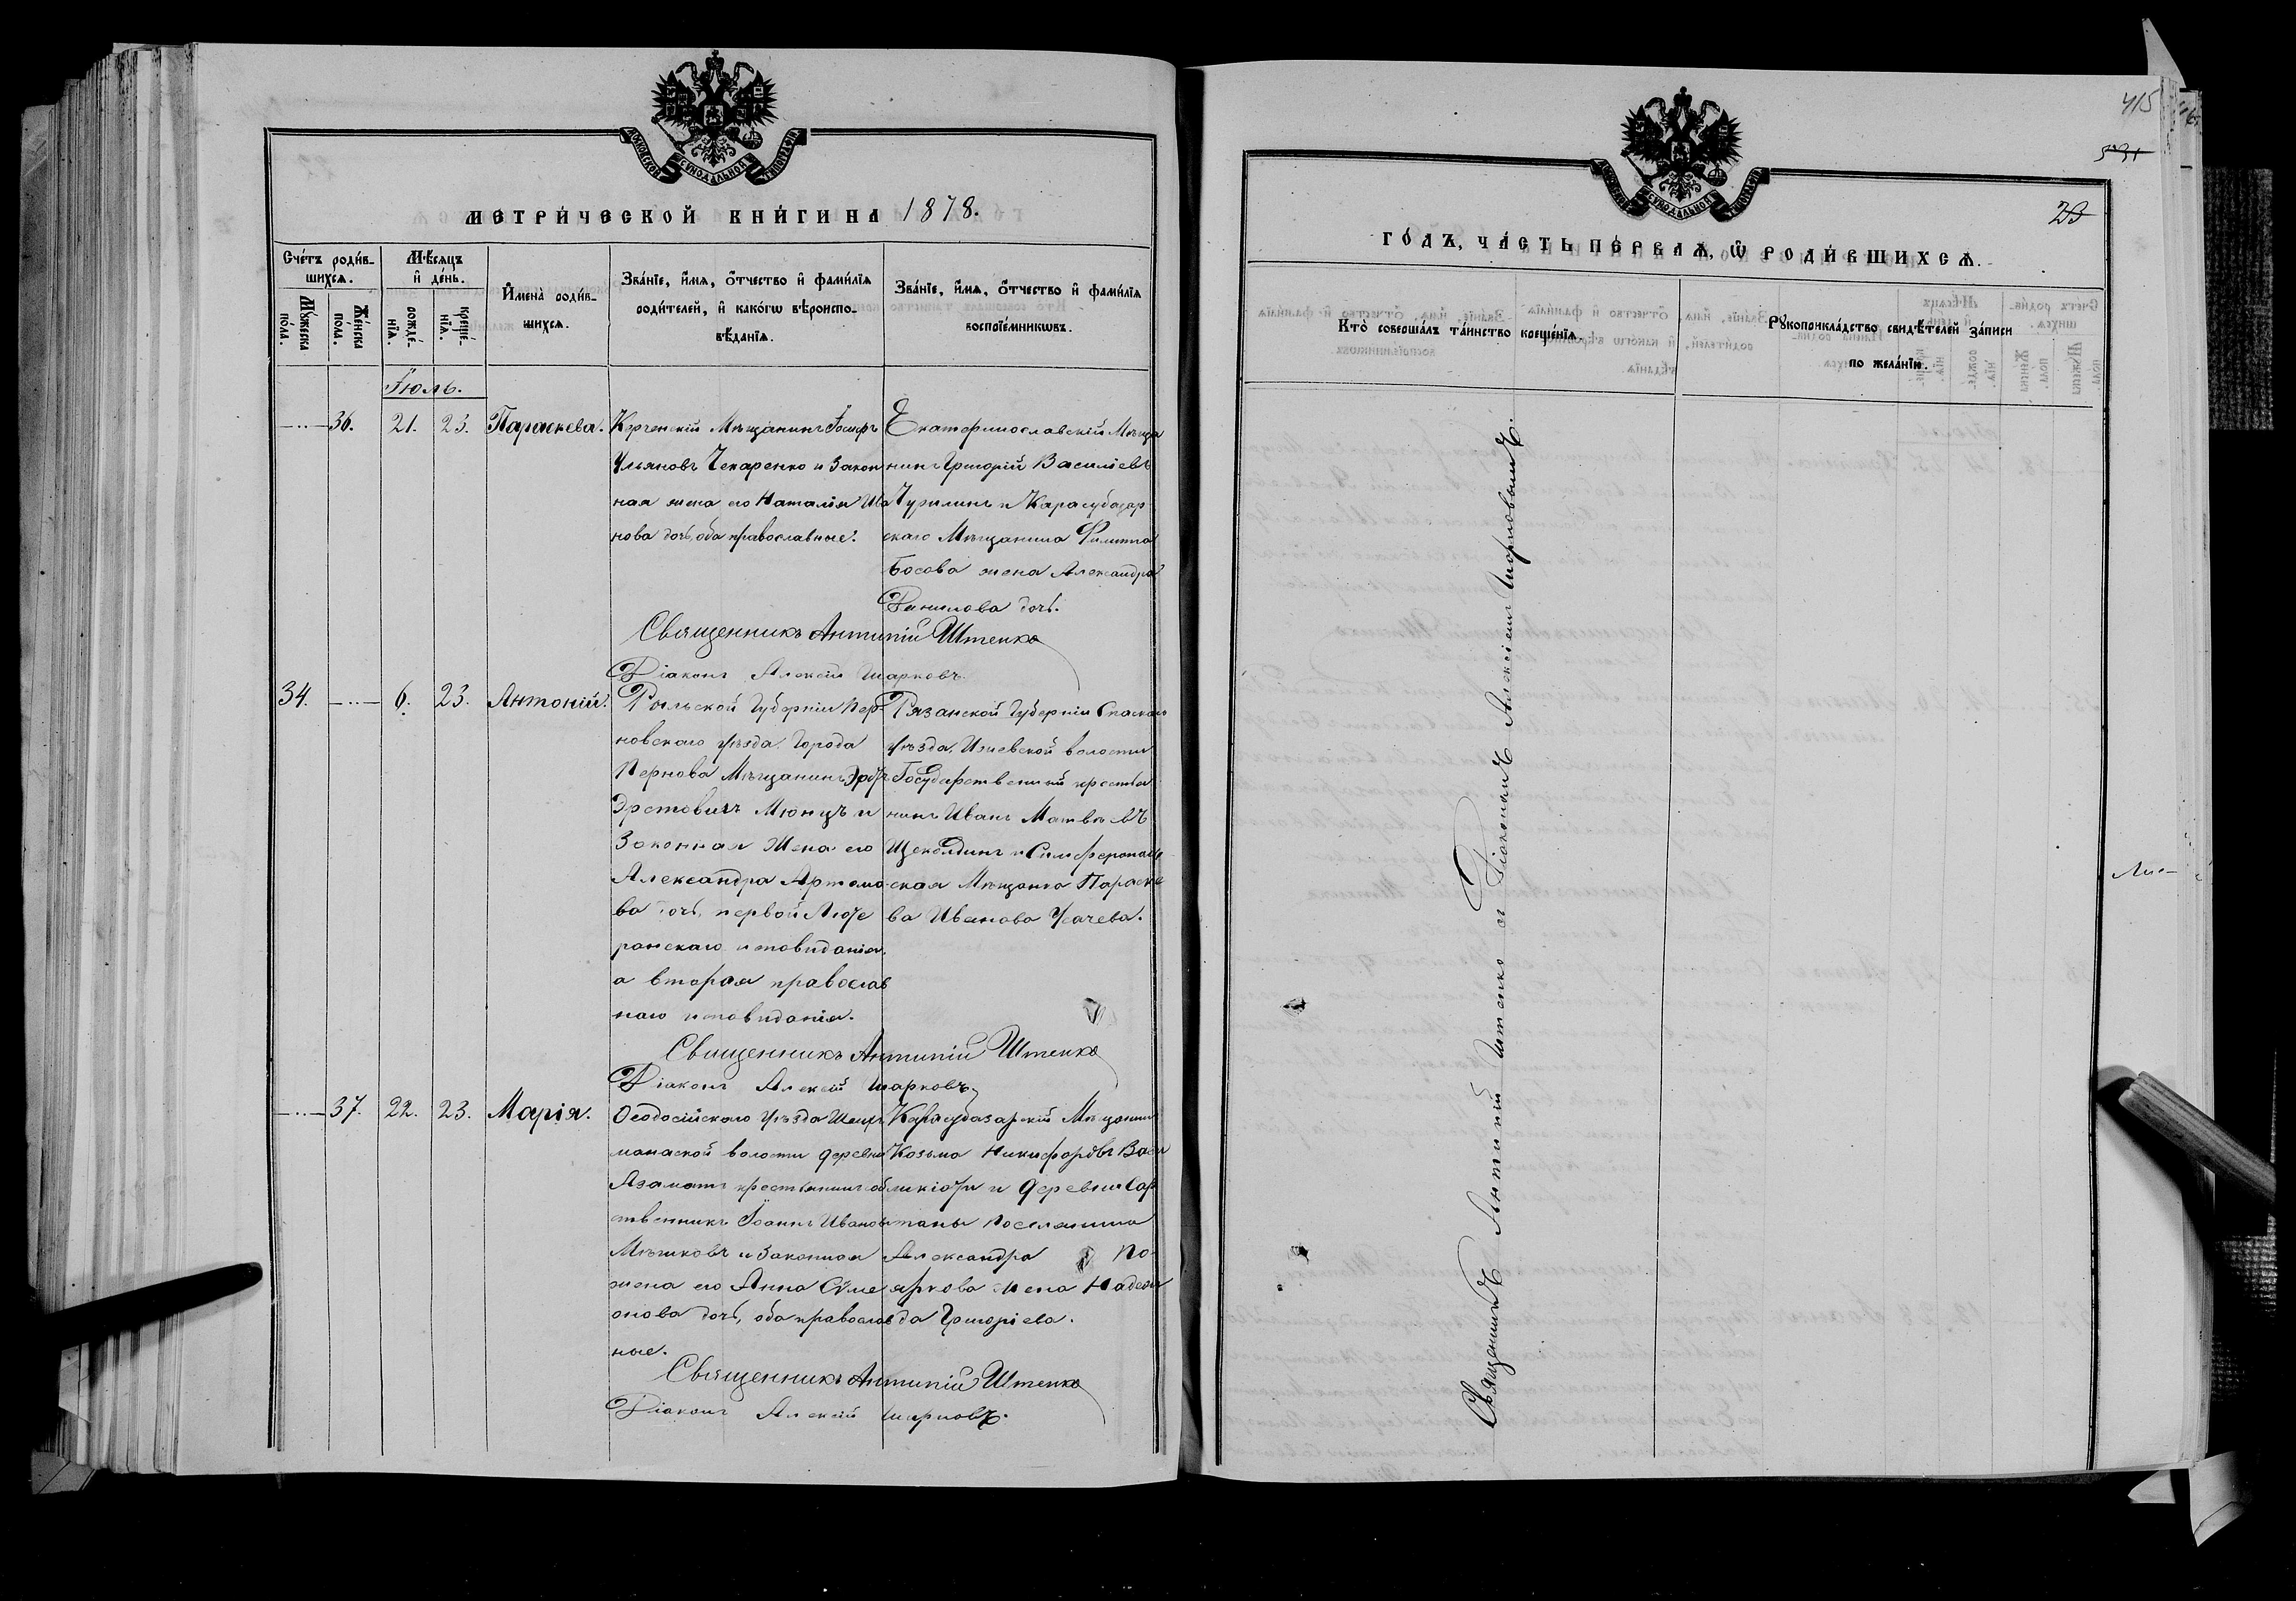 МОСКОВСКОЙ СѴНОДАЛЬНОЙ ТИПОГРАФІИ
МЕТРИ́ЧЕСКОЙ КНИ́ГИ НА 1878.
Сче́тъ роди́в-
шихсѧ.
Мꙋ́жеска по́ла.
Же́нска пола.
Мѣ́сѧцъ
и҆ де́нь.
рожде́-
нїѧ.
креще́-
нїѧ.
И҆мена̀ роди́в-
шихсѧ.
Зва́нїе, и҆́мѧ, ѻ҆́тчество и҆ фами́лїѧ
роди́телей, и҆ како́гѡ вѣроиспо-
вѣ́данїѧ.
Зва́нїе, и҆́мѧ, ѻ҆́тчество и҆ фами́лїѧ
воспрїе́мникѡвъ.
Іюль.
36. 21. 23. Параскева.
Керченскій Мѣщанинъ Іосифъ
Ульяновъ Чекаренко и Закон
ная жена его Наталія Ива
нова дочь, оба православные.
Екатеринославскій Мѣща
нинъ Григорій Василіевъ
Чурилинъ и Карасубазар
скаго Мѣщанина Филиппа
Босова жена Александра
Данилова дочь.
Священникъ Антипій Штенко
Діаконъ Алексій Шарковъ.
34. 6. 23. Антоній.
Губерніи Пер-
новскаго уѣзда. Города
Пернова Мѣщанинъ
Мюнцъ и
Законная Жена его
Александра Артемо
ва дочь, первой Люте
ранскаго исповиданія,
а вторая православ
наго исповиданія.
Рязанской Губерніи Спаскаго
уѣзда, Ижевской волости
Государственный крестья
нинъ Иванъ Матвѣевъ
и Симферополь
ская Мѣщанка Параске
ва Иванова Усачева.
Священникъ Антипій Штенко
Діаконъ Алексій Шарковъ
37. 22. 23. Марія.
Ѳеодосійскаго уѣзда
волости деревни
Азаматъ крестьянинъ соб
ственникъ Іоаннъ Ивановъ
Мѣшковъ и законная
жена его Анна Симе
онова дочь, оба православ
ные.
Карасубазарскій Мѣщанинъ
Козьма Никифоровъ
и деревни Сар
таны Поселянина
Александра По-
яркова жена Надеж
да Григоріева.
Священникъ Антипій Штенко
Діаконъ Алексій Шарковъ.
415
МОСКОВСКОЙ СѴНОДАЛЬНОЙ ТИПОГРАФІИ
ГО́ДЪ, ЧА́СТЬ ПЕ́РВАѦ, Ѡ҆ РОДИ́ВШИХСѦ.
Кто̀ соверша́лъ та́инство креще́нїѧ.
Рꙋкоприкла́дство свидѣ́телей за́писи
по жела́нїю.
Священникъ Антипій Штенко и Діаконъ Алексій Шарковъ.